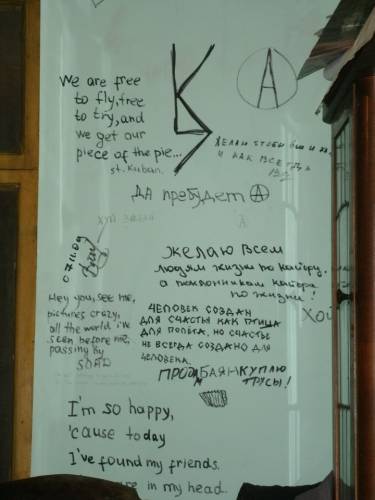 We are free
to fly, free
to try, and
we get our
piece of the pie...
st. Kuban.
A
И КАК ВСЕГДА
ДА пребудет A
A
07.11.09
ЖЕЛАЮ ВСЕМ
людям жизни по кайфу,
а поклонникам кайфа
по жизни!
ХОЙ
Hey you, see me,
pictures crazy,
all the world i've
seen before me,
passing by
SOAD
ЧЕЛОВЕК СОЗДАН
ДЛЯ СЧАСТЬЯ КАК ПТИЦА
ДЛЯ ПОЛЕТА, НО СЧАСТЬЕ
НЕ ВСЕГДА СОЗДАНО ДЛЯ
ЧЕЛОВЕКА.
КУПЛЮ
ТРУСЫ!
I'm so happy,
'cause today
I've found my friends.
in my head.